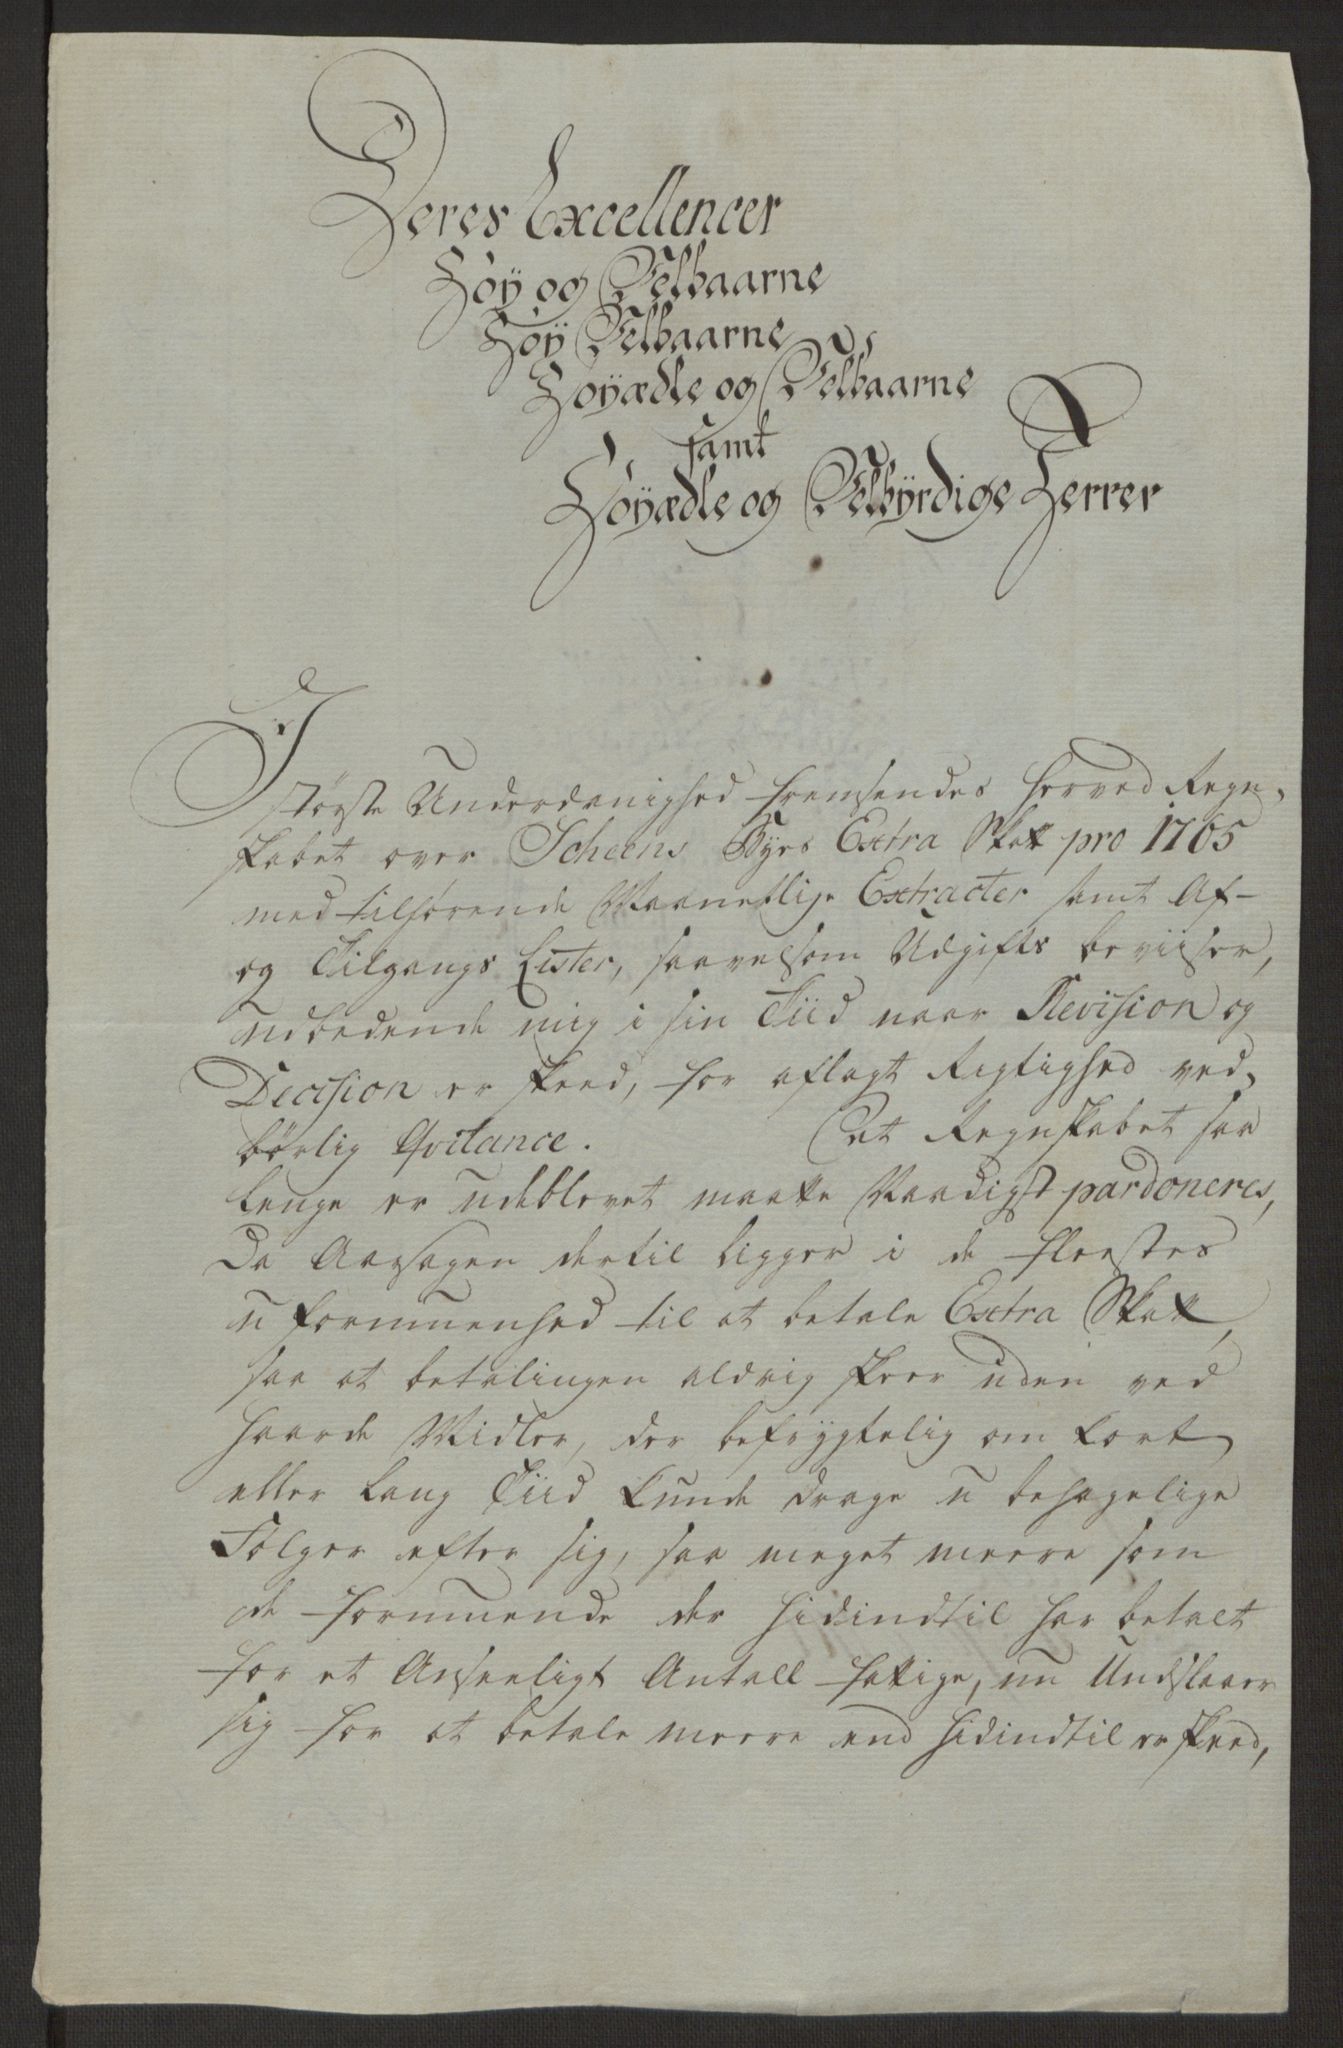 Deres Excellencer
Höÿ og Velbaarne
Höÿ Velbaarne
Höyædle og Velbaarne
samt
Höÿædle og Velbÿrdige Herrer
I
störste Underdanighed fremsendes herved Regn-
skabet over Scheens Byes Extra Skatt pro 1765
med tilhörende Maanetlige Extracter samt Af-
og Tilgangs Lister, saavelsom Udgifts beviiser,
udbedende mig i sin Tiid naar Revision og
Decision er skeed, for aflagt Rigtighed ved-
börlig Qvitance. at Regnskabet saa
lenge er udeblevet maatte Naadigst pardoneres,
Da Aarsagen dertil ligger i de fleestes
uformuenhed til at betale Extra Skatt,
saa at betalingen aldrig skeer uden ved
haarde Midler, der befrygtelig om kort
eller lang Tiid kunde drage u behagelige
Fölger efter sig, saa meget meere som
de formuende der hidindtil har betalt
for et Anseeligt Antall fattige, nu Undslaaer
sig for at betale meere end hidindtil er skeed,